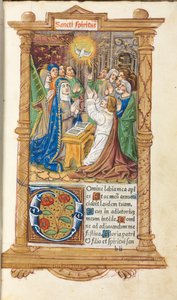 Sancti spiritus
Omine labia mea ape
Et os meũ annun
ciabit laudem tuam.
Deus in adiutoriũ
meum intẽde.
Domine
ad adiuuandum me
festina.
Gloria patri
et filio et spiritui san